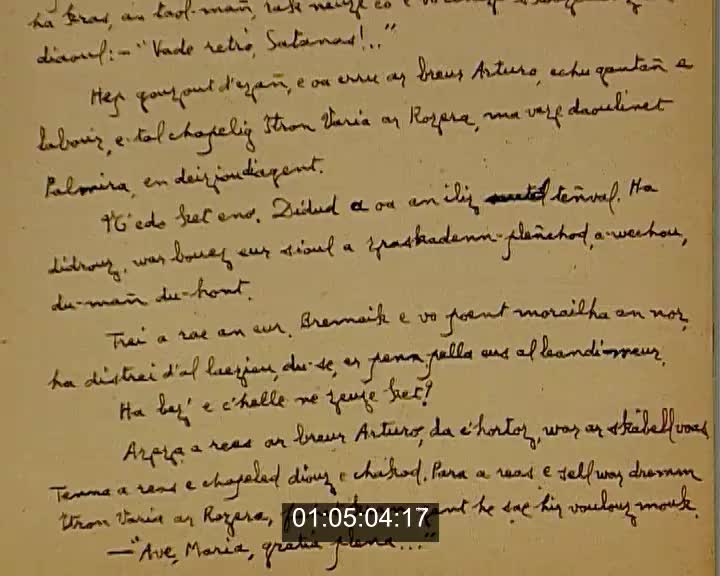 ha kras, an taol-mañ, rak neuze eo e
diaoul: — "Vade retro, Satanas!.."
Hep gouzout d'ezañ, e oa erru ar breur Arturo, echu gantañ e
labour, e-tal chapelig Itron Varia ar Rozera, ma veze daoulinet
Palmira, en deizioudiagent.
N'edo ket eno. Didud e oa an iliz teñval. Ha
didrouz, war bouez eur sioul a zraskadenn-pleñchod, a-wechou,
du-mañ du-hont.
Trei a rae an eur. Bremaik e vo poent morailha an nor,
ha distrei d'al laeziou, du-se, er penn pella eus al leandi-meur.
Ha bez' e c'helle ne zeuze ket?
Azeza a reas ar breur Arturo, da c'hortoz, war ar skabell voas
Tenna a reas e chapeled diouz e c'hakod. Para a reas e sell war dremm
Itron Varia ar Rozera, gant he sae hir voulouz mouk.
— "Ave, Maria, gratia plena..."
01:05:04:17